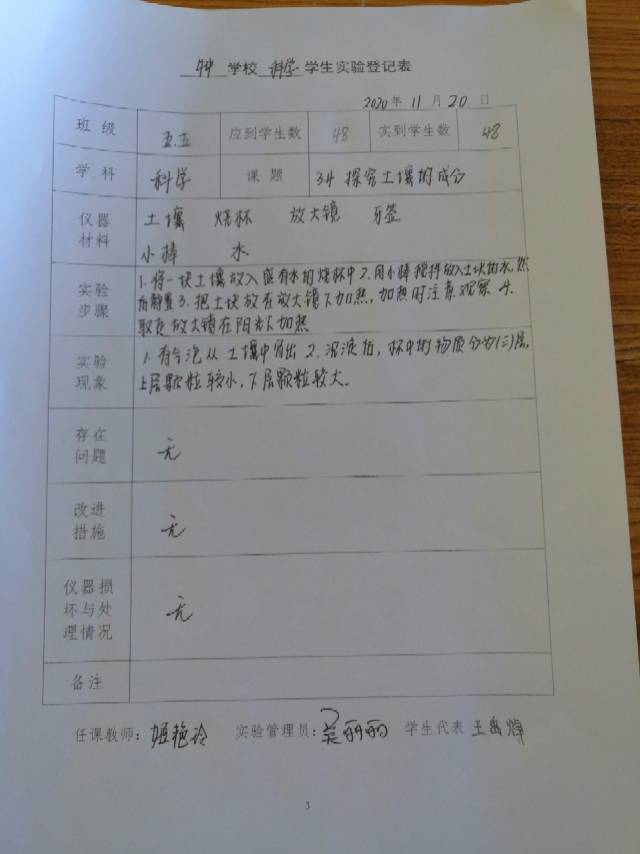 学校 科学 学生实验登记表
2020年 11月 20日
班级 五.五 应到学生数 48 实到学生数 48
学科 科学 课题 34 探究土壤的成分
仪器材料 土壤 烧杯 放大镜 牙签
小棒 水
实验步骤 1.将一块土壤放入盛有水的烧杯中2.用小棒搅拌放入土块的水,然
后静置3.把土块放在放大镜下加热,加热时注意观察 4.
取走放大镜在阳光下加热
实验现象 1.有气泡从土壤中冒出 2.沉淀后,杯中的物质分为(三)层,
上层颗粒较小,下层颗粒较大。
存在问题 无
改进措施 无
仪器损坏与处理情况 无
备注
任课教师:姬艳玲 实验管理员:吴丽丽 学生代表 王
3